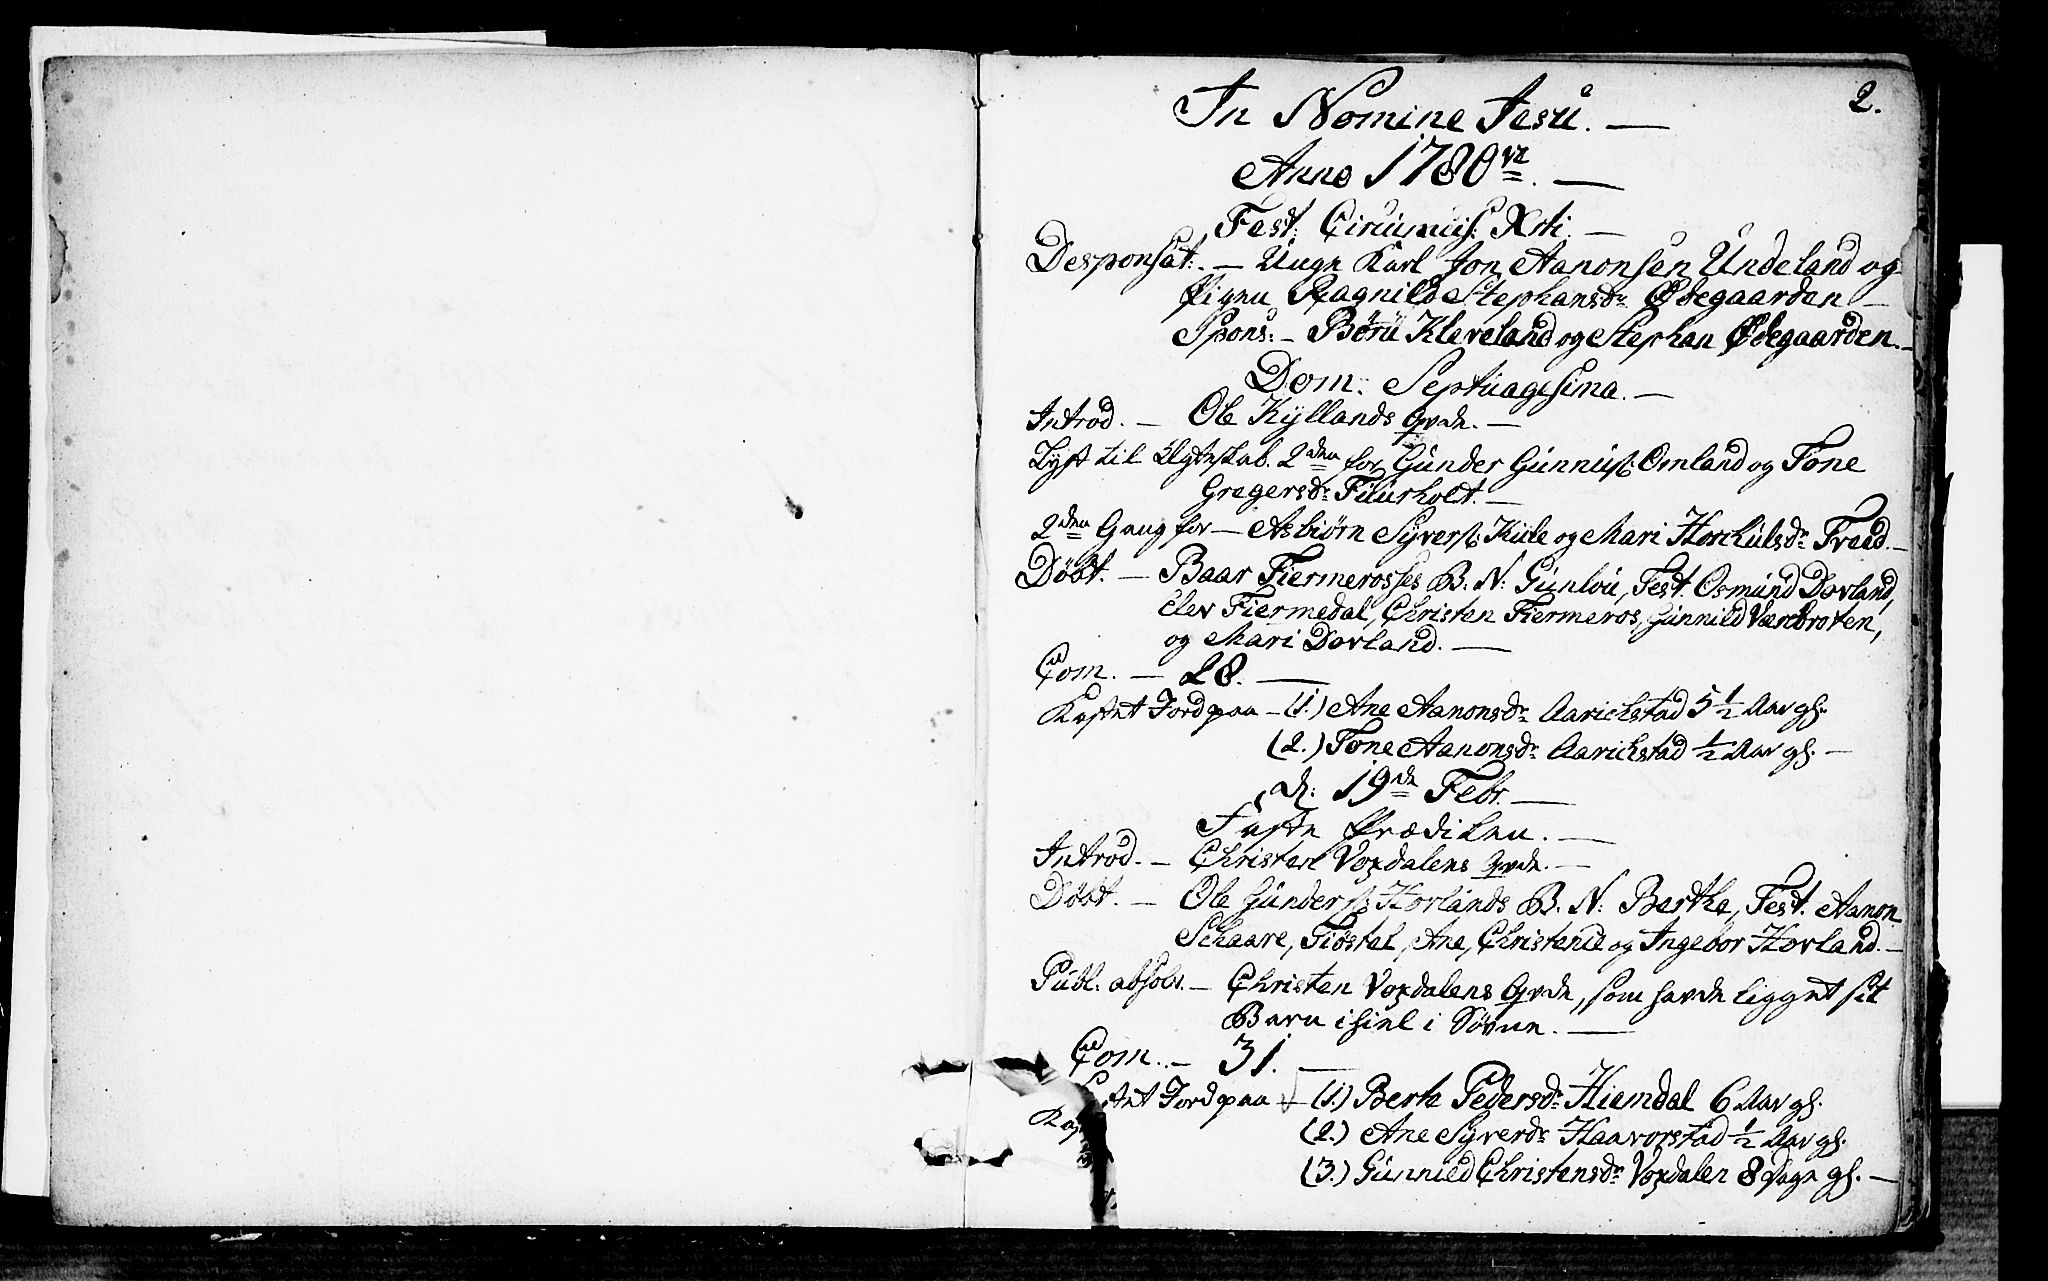 2.
In Nomine Jesu. —
Anno 1780ve. —
Fest: Circumcis: Xsti. —
Desponsat: — Unge Karl Jon Aanonsen Undeland og
Pigen Ragnild Stephansdr Ødegaarden —
Spons: — Børu Kleveland og Stephan Ødegaarden. —
Dom: Septuagesima. —
Introd. — Ole Kyllands Qvde. —
Lyst til Ægteskab. 2den for Gunder Gunnufs: Omland og Tone
Gregersdr Fuurholt. —
2den Gang for — Asbiørn Syvers: Kiile og Mari Torkilsdr Tveed. —
Døbt. — Baar Fiermerosses B: N: Gunlou, Test. Osmund Dovland,
Elev Fiermedal, Christen Fiermeros, Gunnild Værbroten,
og Mari Dovland. —
Com. — 28. —
Kastet Jord paa — (1.) Ane Aanonsdr Aarickstad 5 1/2 Aar gl.
(2.) Tone Aanonsdr Aarickstad 1/2 Aar gl. —
d: 19de Febr. —
Faste Prædiken. —
Introd. — Christen Voxdalens Qvde. —
Døbt. — Ole Gunders: Hovlands B. N: Berthe, Test. Aanon
Schaare, Tiøstel, Ane, Christence og Ingebor Hovland. —
Publ. absolv. — Christen Voxdalens Qvde, som havde ligget sit
Barn ihiel i Søvne. —
Com. — 31. —
Kastet Jord paa — (1.) Berte Pedersdr Hiemdal 6 Aar gl.
(2.) Ane Syverdr Haavorstad 1/2 Aar gl.
(3.) Gunnild Christensdr Voxdalen 8 Dage gl. —